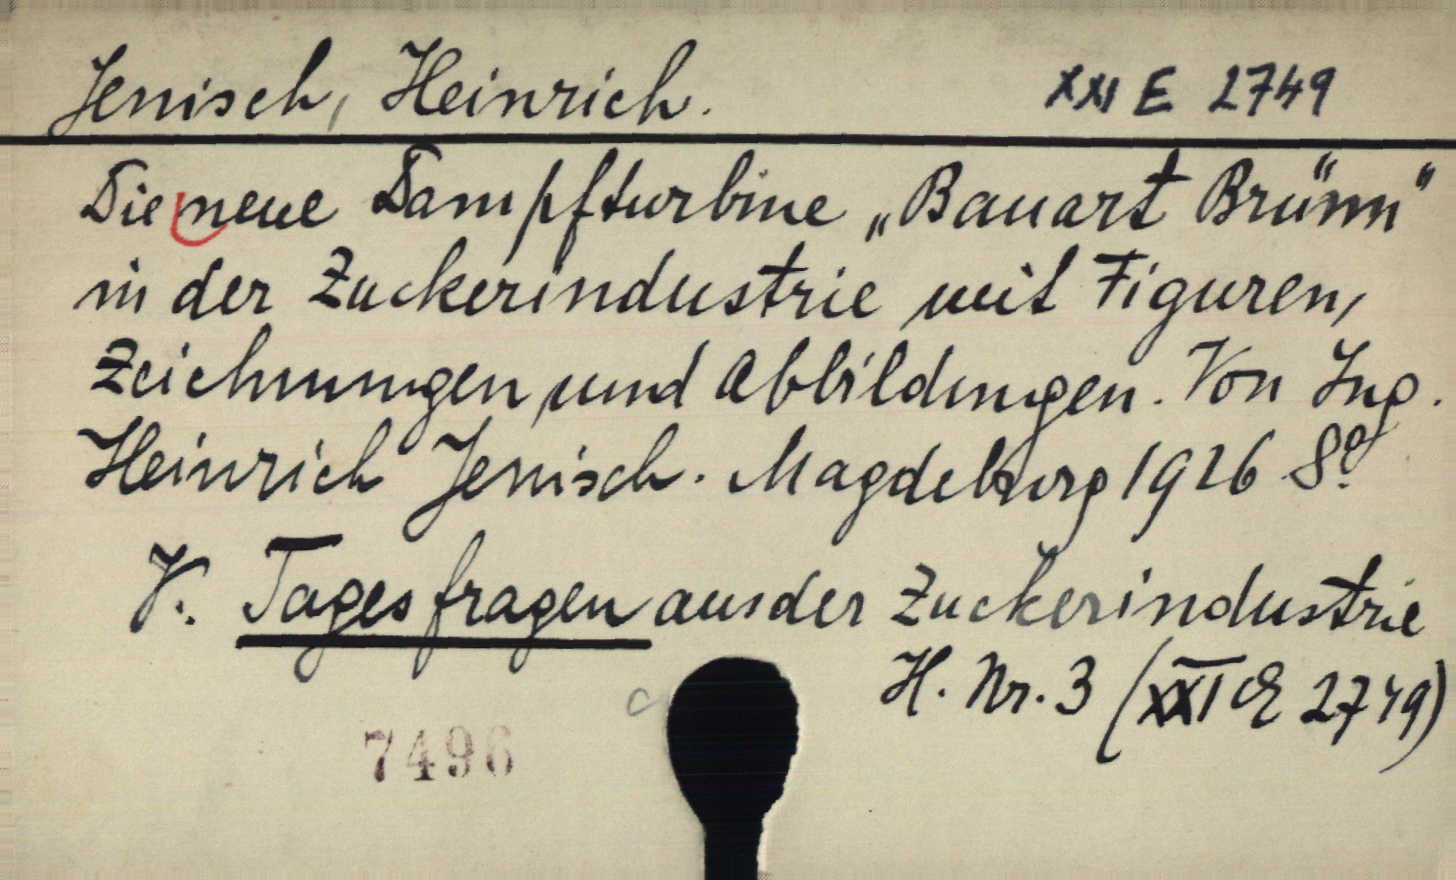 Jenisch, Heinrich. XXI E 2749
Die neue Dampfturbine „Bauart Brünn"
in der Zuckerindustrie mit Figuren,
Zeichnungen und Abbildungen. Von Ing.
Heinrich Jenisch. Magdeburg 1926 8°.
V. Tagesfragen aus der Zuckerindustrie
H. Nr. 3 (XXI E 2749)
c
7496